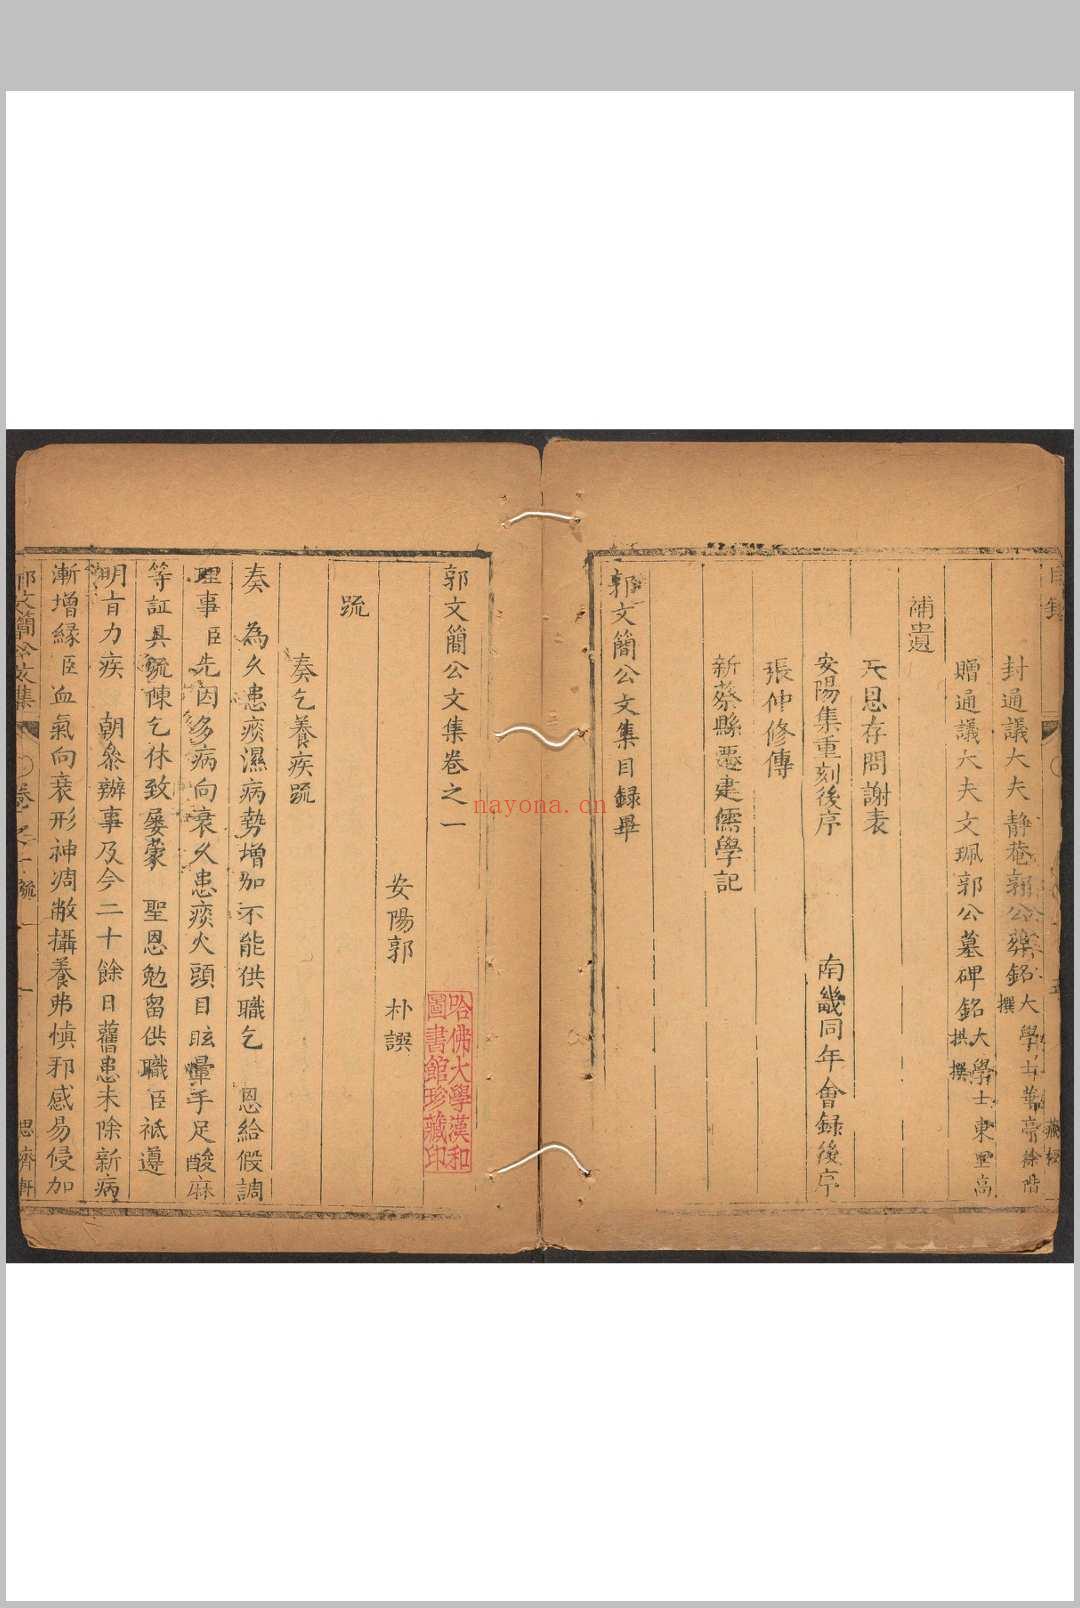 封通議大夫靜菴郭公葬銘大學士華亭徐階撰
贈通議大夫文珮郭公墓碑銘大學士東里高拱撰
補遺
天恩存問謝表
安陽集重刻後序 南畿同年會録後序
張仲修傳
新蔡縣遷建儒學記
郭文簡公文集目録畢
郭文簡公文集卷之一
安陽郭 朴譔
疏
奏乞養疾疏
奏 為久患痰濕病勢增加不能供職乞 恩給假調
理事臣先因多病向衰久患痰火頭目眩暈手足酸麻
等証具疏陳乞休致屡蒙 聖恩勉留供職臣祗遵
明旨力疾 朝叅辦事及今二十餘日舊患未除新病
漸增緣臣血氣向衰形神凋敝攝養弗慎邪感易侵加
郭文簡公文集 卷之一疏 一 思齊軒
哈佛大學漢和
圖書館珍藏印
nayona.cn